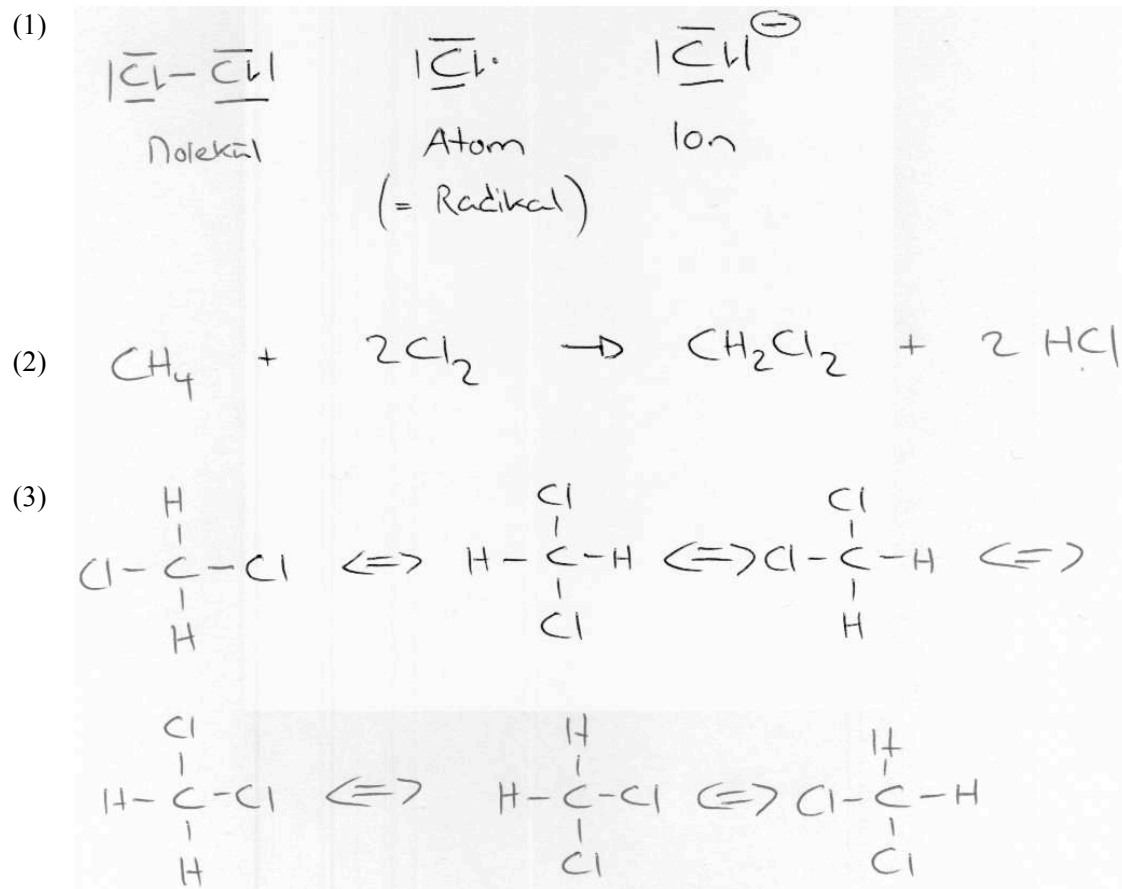 (1) |C̅l̲ – C̅l̲| |C̅l̲· |C̅l̲|⊖
Molekül Atom Ion
(= Radikal)
(2) CH₄ + 2Cl₂ → CH₂Cl₂ + 2 HCl
(3) H Cl Cl
| | |
Cl – C – Cl <=> H – C – H <=> Cl – C – H <=>
| | |
H Cl H
Cl H H
| | |
H – C – Cl <=> H – C – Cl <=> Cl – C – H
| | |
H Cl Cl